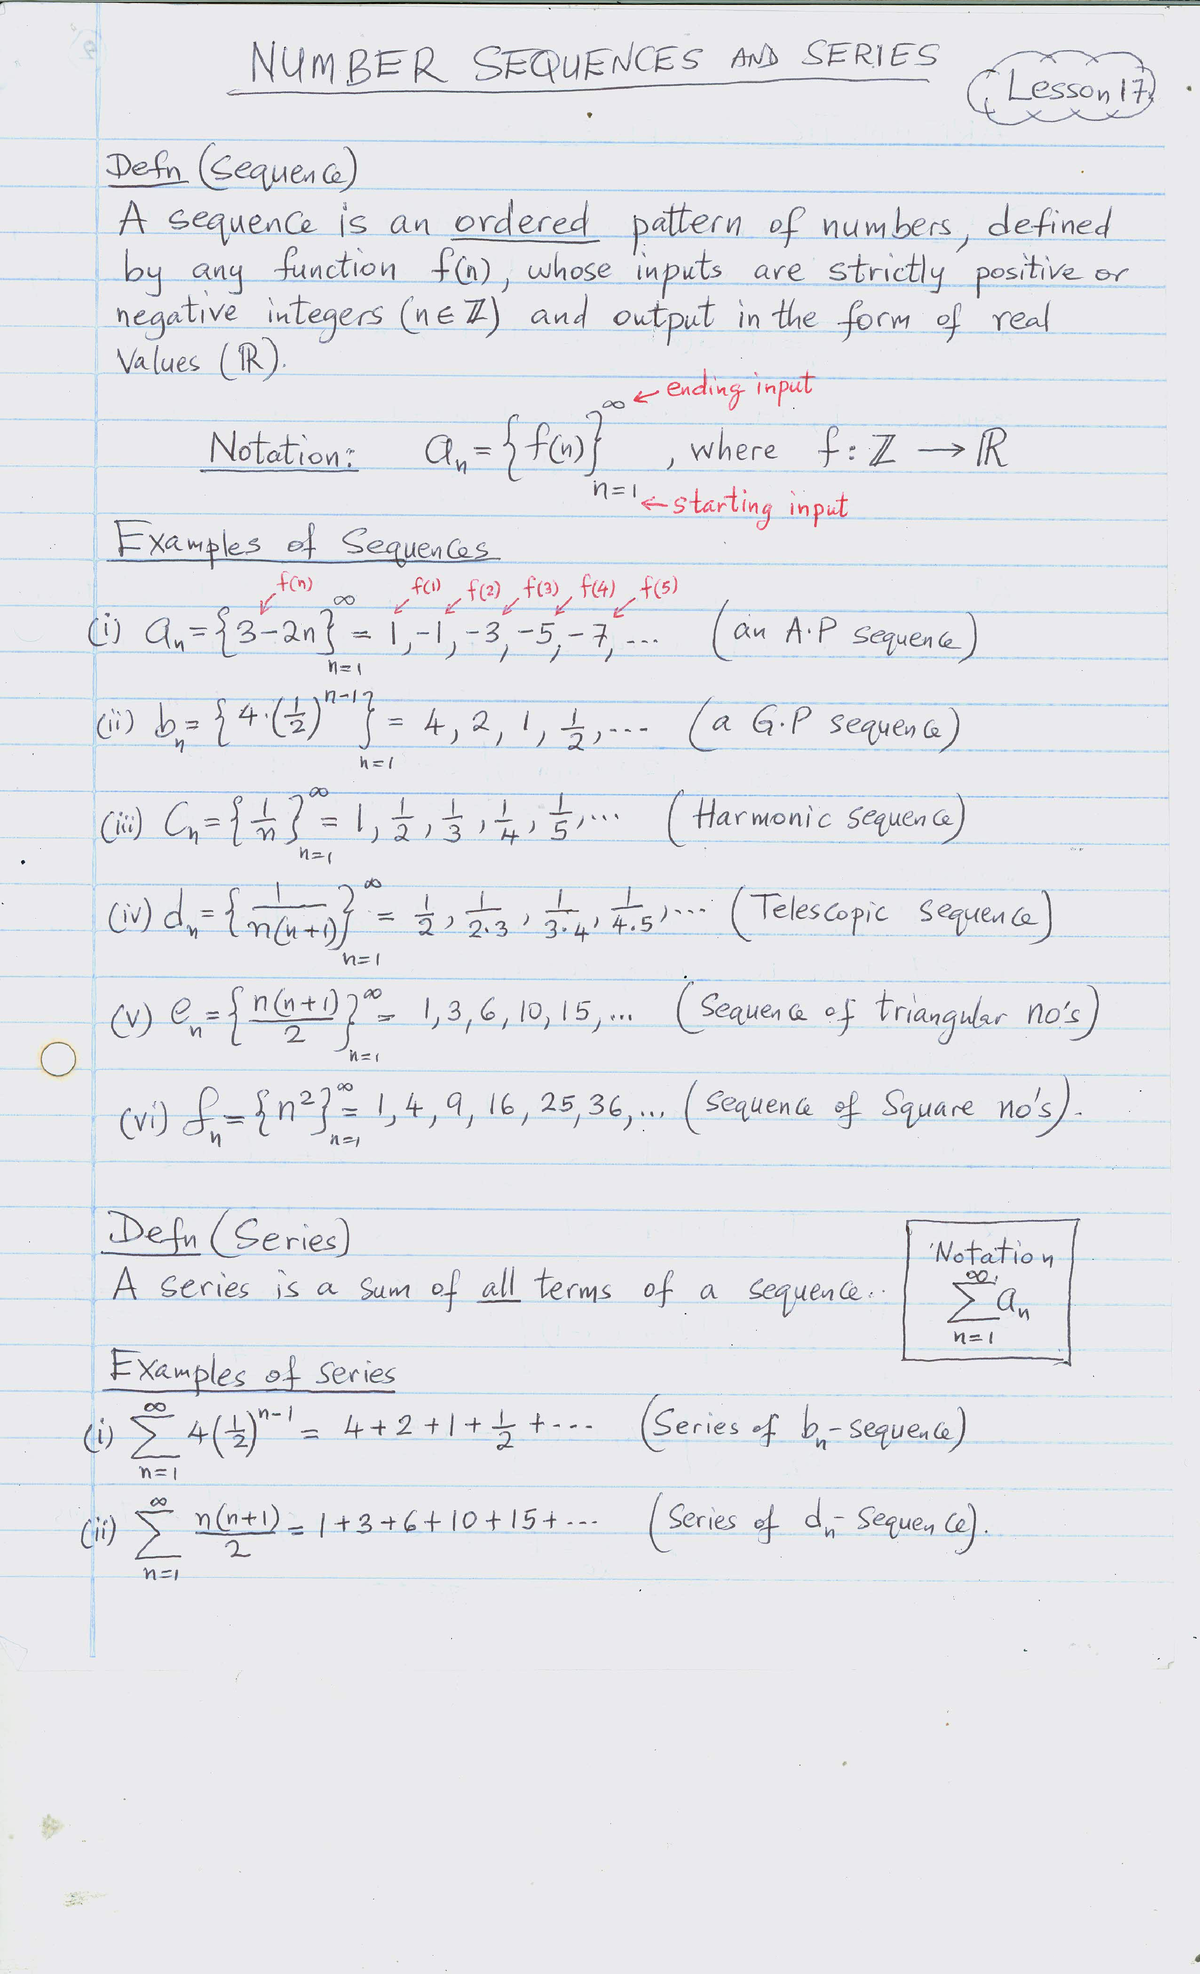 NUMBER SEQUENCES AND SERIES
Lesson 17
Defn (Sequence)
A sequence is an ordered pattern of numbers, defined
by any function f(n), whose inputs are strictly positive or
negative integers (n∈ℤ) and output in the form of real
Values (ℝ).
∞ ← ending input
Notation: aₙ = {f(n)} , where f: ℤ → ℝ
n=1 ← starting input
Examples of Sequences
f(n) f(1) f(2) f(3) f(4) f(5)
(i) aₙ = {3-2n}^∞_{n=1} = 1, -1, -3, -5, -7, ... (an A.P sequence)
(ii) bₙ = {4·(1/2)^{n-1}}_{n=1} = 4, 2, 1, 1/2, ... (a G.P sequence)
(iii) Cₙ = {1/n}^∞_{n=1} = 1, 1/2, 1/3, 1/4, 1/5, ... (Harmonic sequence)
(iv) dₙ = {1/n(n+1)}^∞_{n=1} = 1/2, 1/2.3, 1/3.4, 1/4.5, ... (Telescopic sequence)
(v) eₙ = {n(n+1)/2}^∞_{n=1} = 1, 3, 6, 10, 15, ... (Sequence of triangular no's)
(vi) fₙ = {n²}^∞_{n=1} = 1, 4, 9, 16, 25, 36, ... (Sequence of Square no's).
Defn (Series)
A series is a sum of all terms of a sequence..
Notation
∑^∞_{n=1} aₙ
Examples of series
(i) ∑^∞_{n=1} 4(1/2)^{n-1} = 4+2+1+1/2+... (Series of bₙ-sequence)
(ii) ∑^∞_{n=1} n(n+1)/2 = 1+3+6+10+15+... (Series of dₙ-Sequence).